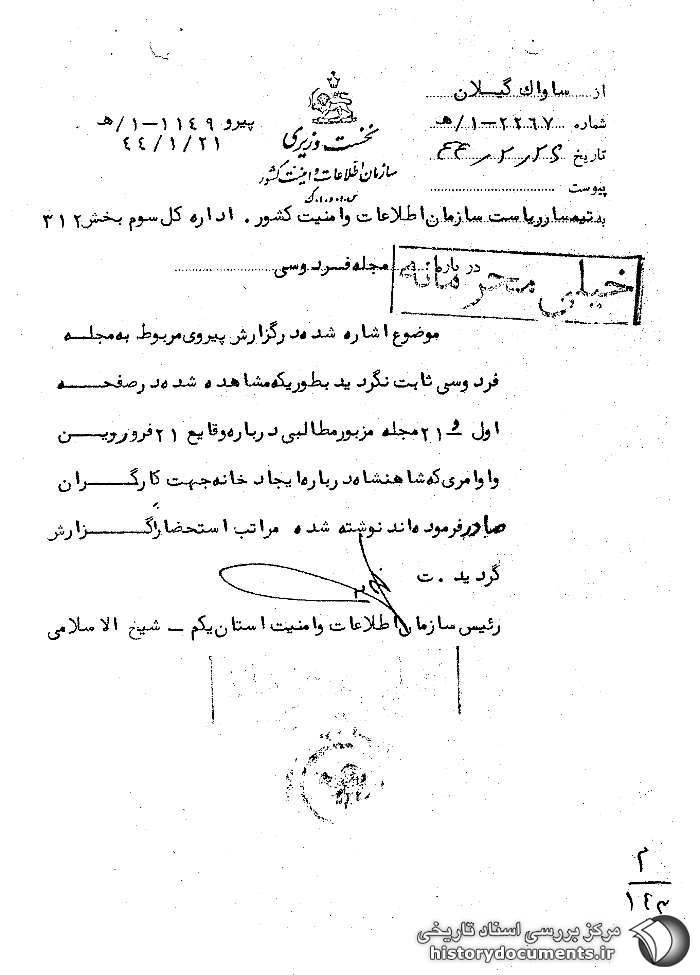 از ساواك گیلان
شماره ۲۲۶۷–۱/هـ
تاریخ ۴۴-۲-۲۵
پیوست
نخست وزیری
سازمان اطلاعات و امنیت کشور
س.ا.و.ا.ک
پیرو ۱۱۴۹–۱/هـ
۴۴/۱/۲۱
به تیمسار ریاست سازمان اطلاعات و امنیت کشور . اداره کل سوم بخش ۳۱۲
درباره مجله فردوسی
خیلی محرمانه
موضوع اشاره شده در گزارش پیروی مربوط به مجله
فردوسی ثابت نگردید بطوریکه مشاهده شده در صفحه
اول و ۲۱ مجله مزبور مطالبی درباره وقایع ۲۱ فروردین
و اوامری که شاهنشاه درباره ایجاد خانه جهت کارگران
صادر فرموده اند نوشته شده مراتب استحضاراً گزارش
گردید . ت
رئیس سازمان اطلاعات و امنیت استان یکم – شیخ الاسلامی
م
۱۴۳
مرکز بررسی اسناد تاریخی
historydocuments.ir